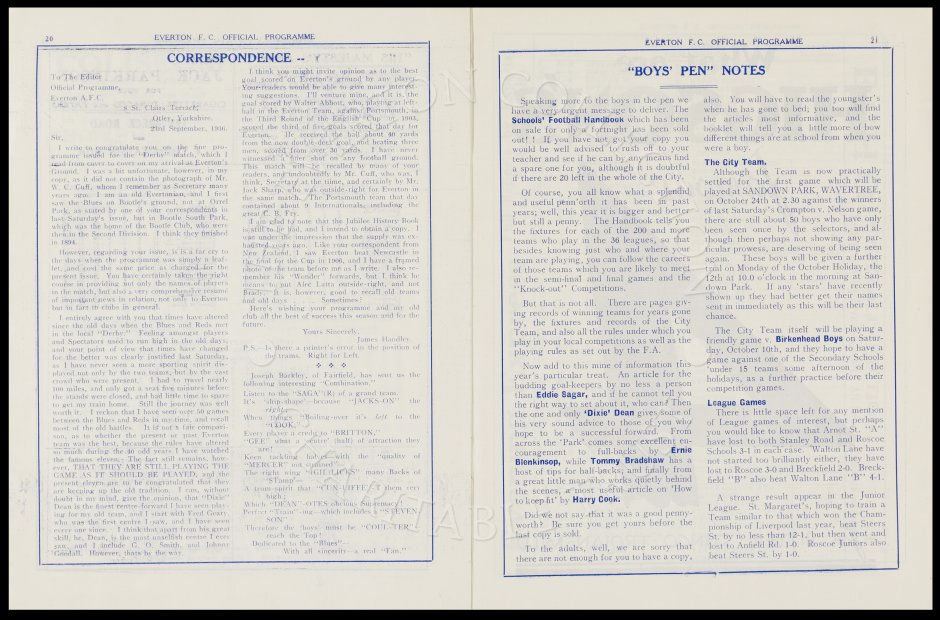 20
EVERTON F. C. OFFICIAL PROGRAMME
CORRESPONDENCE --
To The Editor
Official Programme,
Everton A.F.C.
8 St. Clairs Terrace,
Otley, Yorkshire.
23rd September, 1936.
Sir,
I write to congratulate you on the fine pro-
gramme issued for the "Derby" match, which I
read from cover to cover on my arrival at Everton's
Ground. I was a bit unfortunate, however, in my
copy, as it did not contain the photograph of Mr.
W. C. Cuff, whom I remember as Secretary many
years ago. I am an old Evertonian, and I first
saw the Blues on Bootle's ground, not at Orrel
Park, as stated by one of your correspondents in
last Saturday's issue, but in Bootle South Park,
which was the home of the Bootle Club, who were
then in the Second Division. I think they finished
in 1894.
However, regarding your issue, it is a far cry to
the days when the programme was simply a leaf-
let, and cost the same price as charged for the
present issue. You have certainly taken the right
course in providing not only the names of players
in the match, but also a very comprehensive resume
of important news in relation, not only to Everton
but in fact to clubs in general.
I entirely agree with you that times have altered
since the old days when the Blues and Reds met
in the local "Derby." Feeling amongst players
and Spectators used to run high in the old days,
and your point of view that times have changed
for the better was clearly justified last Saturday,
as I have never seen a more sporting spirit dis-
played not only by the two teams, but by the vast
crowd who were present. I had to travel nearly
100 miles, and only got a seat five minutes before
the stands were closed, and had little time to spare
to get my train home. Still the journey was well
worth it. I reckon that I have seen over 50 games
between the Blues and Reds in my time, and recall
most of the old battles. It is not a fair compari-
son, as to whether the present or past Everton
team was the best, because the rules have altered
so much during the 40 odd years I have watched
the famous eleven. The fact still remains, how-
ever, THAT THEY ARE STILL PLAYING THE
GAME AS IT SHOULD BE PLAYED, and the
present eleven are to be congratulated that they
are keeping up the old tradition. I can, without
doubt in my mind, give the opinion, that "Dixie"
Dean is the finest centre-forward I have seen play-
ing for my old team, and I start with Fred Geary,
who was the first centre I saw, and I have seen
every one since. I think that apart from his great
skill, he, Dean, is the most unselfish centre I ever
saw, and I include G. O. Smith, and Johnny
Goodall. However, thats by the way.
I think you might invite opinion as to the best
goal scored on Everton's ground by any player.
Your readers would be able to give many interest-
ing suggestions. I'll venture mine, and it is, the
goal scored by Walter Abbott, who, playing at left-
half in the Everton Team, against Portsmouth, in
the Third Round of the English Cup in 1903,
scored the third of five goals scored that day for
Everton. He received the ball about 40 yards
from the now double deck goal, and beating three
men, scored from over 30 yards. I have never
witnessed a finer shot on any football ground.
This match will be recalled by many of your
readers, and undoubtedly by Mr. Cuff, who was, I
think, Secretary at the time, and certainly by Mr.
Jack Sharp, who was outside-right for Everton in
the same match. The Portsmouth team that day
contained about 9 Internationals, including the
great C. B. Fry.
I am glad to note that the Jubilee History Book
is still to be had, and I intend to obtain a copy. I
was under the impression that the supply was ex-
hausted years ago. Like your correspondent from
New Zealand, I saw Everton beat Newcastle in
the final for the Cup in 1906, and I have a framed
photo of the team before me as I write. I also re-
member his "Wonder" forwards, but I think he
means to put Alec Latta outside-right, and not
Brady. It is, however, good to recall old teams
and old days . . . Sometimes?
Here's wishing your programme and my old
club all the best of success this season and for the
future.
Yours Sincerely,
James Handley.
P.S.—Is there a printer's error in the position of
the teams. Right for Left.
Joseph Barkley, of Fairfield, has sent us the
following interesting "Combination."
Listen to the "SAGA"(R) of a grand team.
It's "ship-shape"—because "JACKS-ON" the
right
When things "Boiling-over it's left to the
"COOK."
Every player a credit to "BRITTON,"
"GEE" what a centre (half) of attraction they
are!
Keen tackling halves with the "quality of
"MERCER" not unfined
The right wing "GILLICKS" many Backs of
"Stamp"—
A team-spirit that "CUNLIFFE" them very
high;
Which "DEAN"-OTES obvious Supremacy.
Perfect "Team"-ing—which includes a "STEVEN-
SON"
Therefore the 'boys' must be "COUL-TER"
reach the Top!
Dedicated to the "Blues"—
With all sincerity—a real "Fan."
EVERTON F. C. OFFICIAL PROGRAMME
21
"BOYS' PEN" NOTES
Speaking more to the boys in the pen we
have a very urgent message to deliver. The
Schools' Football Handbook which has been
on sale for only a fortnight has been sold
out! If you have not got your copy you
would be well advised to rush off to your
teacher and see if he can by any means find
a spare one for you, although it is doubtful
if there are 20 left in the whole of the City.
Of course, you all know what a splendid
and useful penn'orth it has been in past
years; well, this year it is bigger and better
but still a penny. The Handbook tells you
the fixtures for each of the 200 and more
teams who play in the 36 leagues, so that
besides knowing just who and where your
team are playing, you can follow the careers
of those teams which you are likely to meet
in the semi-final and final games and the
"Knock-out" Competitions.
But that is not all. There are pages giv-
ing records of winning teams for years gone
by, the fixtures and records of the City
Team, and also all the rules under which you
play in your local competitions as well as the
playing rules as set out by the F.A.
Now add to this mine of information this
year's particular treat. An article for the
budding goal-keepers by no less a person
than Eddie Sagar, and if he cannot tell you
the right way to set about it, who can? Then
the one and only 'Dixie' Dean gives some of
his very sound advice to those of you who
hope to be a successful forward. From
across the 'Park' comes some excellent en-
couragement to full-backs by Ernie
Blenkinsop, while Tommy Bradshaw has a
host of tips for half-backs; and finally from
a great little man who works quietly behind
the scenes, a most useful article on 'How
to keep fit' by Harry Cook.
Did we not say that it was a good penny-
worth? Be sure you get yours before the
last copy is sold.
To the adults, well, we are sorry that
there are not enough for you to have a copy,
also. You will have to read the youngster's
when he has gone to bed; you too will find
the articles most informative, and the
booklet will tell you a little more of bow
different things are at school from when you
were a boy.
The City Team.
Although the Team is now practically
settled for the first game which will be
played at SANDOWN PARK, WAVERTREE,
on October 24th at 2.30 against the winners
of last Saturday's Crompton v. Nelson game,
there are still about 50 boys who have only
been seen once by the selectors, and al-
though then perhaps not showing any par-
ticular prowess, are deserving of being seen
again. These boys will be given a further
trial on Monday of the October Holiday, the
12th at 10.0 o'clock in the morning at San-
down Park. If any 'stars' have recently
shown up they had better get their names
sent in immediately as this will be their last
chance.
The City Team itself will be playing a
friendly game v. Birkenhead Boys on Satur-
day, October 10th, and they hope to have a
game against one of the Secondary Schools
'under 15 teams some afternoon of the
holidays, as a further practice before their
competition games.
League Games
There is little space left for any mention
of League games of interest, but perhaps
you would like to know that Arnot St. "A"
have lost to both Stanley Road and Roscoe
Schools 3-1 in each case. Walton Lane have
not started too brilliantly either, they have
lost to Roscoe 3-0 and Breckfield 2-0. Breck-
field "B" also beat Walton Lane "B" 4-1.
A strange result appear in the Junior
League. St. Margaret's, hoping to train a
Team similar to that which won the Cham-
pionship of Liverpool last year, beat Steers
St. by no less than 12-1, but then went and
lost to Anfield Rd. 1-0. Roscoe Juniors also
beat Steers St. by 1-0.